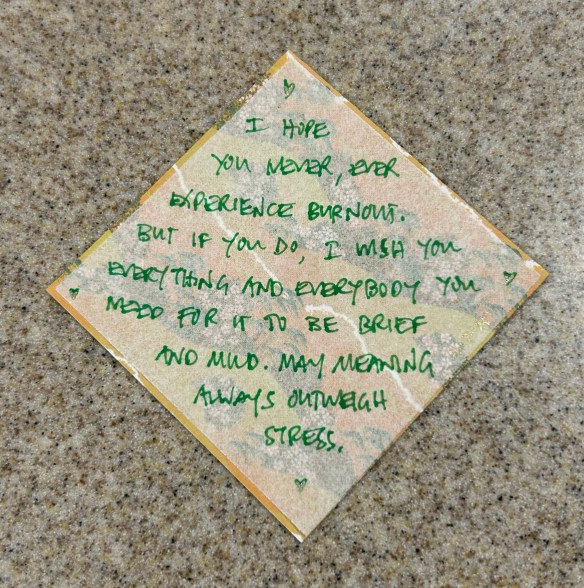 I HOPE
YOU NEVER, EVER
EXPERIENCE BURNOUT.
BUT IF YOU DO, I WISH YOU
EVERYTHING AND EVERYBODY YOU
NEED FOR IT TO BE BRIEF
AND MILD. MAY MEANING
ALWAYS OUTWEIGH
STRESS.